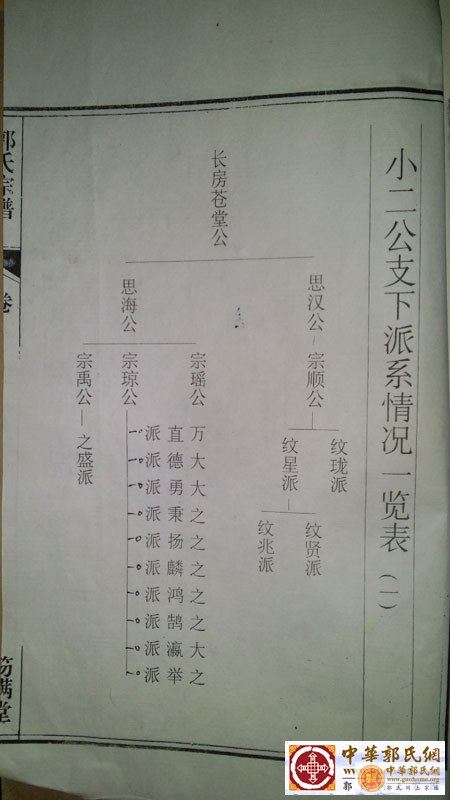 小二公支下派系情况一览表（一）
长房苍堂公
思汉公
宗顺公
纹珑派
纹星派
纹贤派
纹兆派
思海公
宗瑶公
宗琼公
万直派
大德派
大勇派
之秉派
之扬派
之麟派
之鸿派
之鹄派
大瀛派
之举派
宗禹公
之盛派
郭氏宗谱
卷
笏满堂
中華郭氏網
郭
中華郭氏網